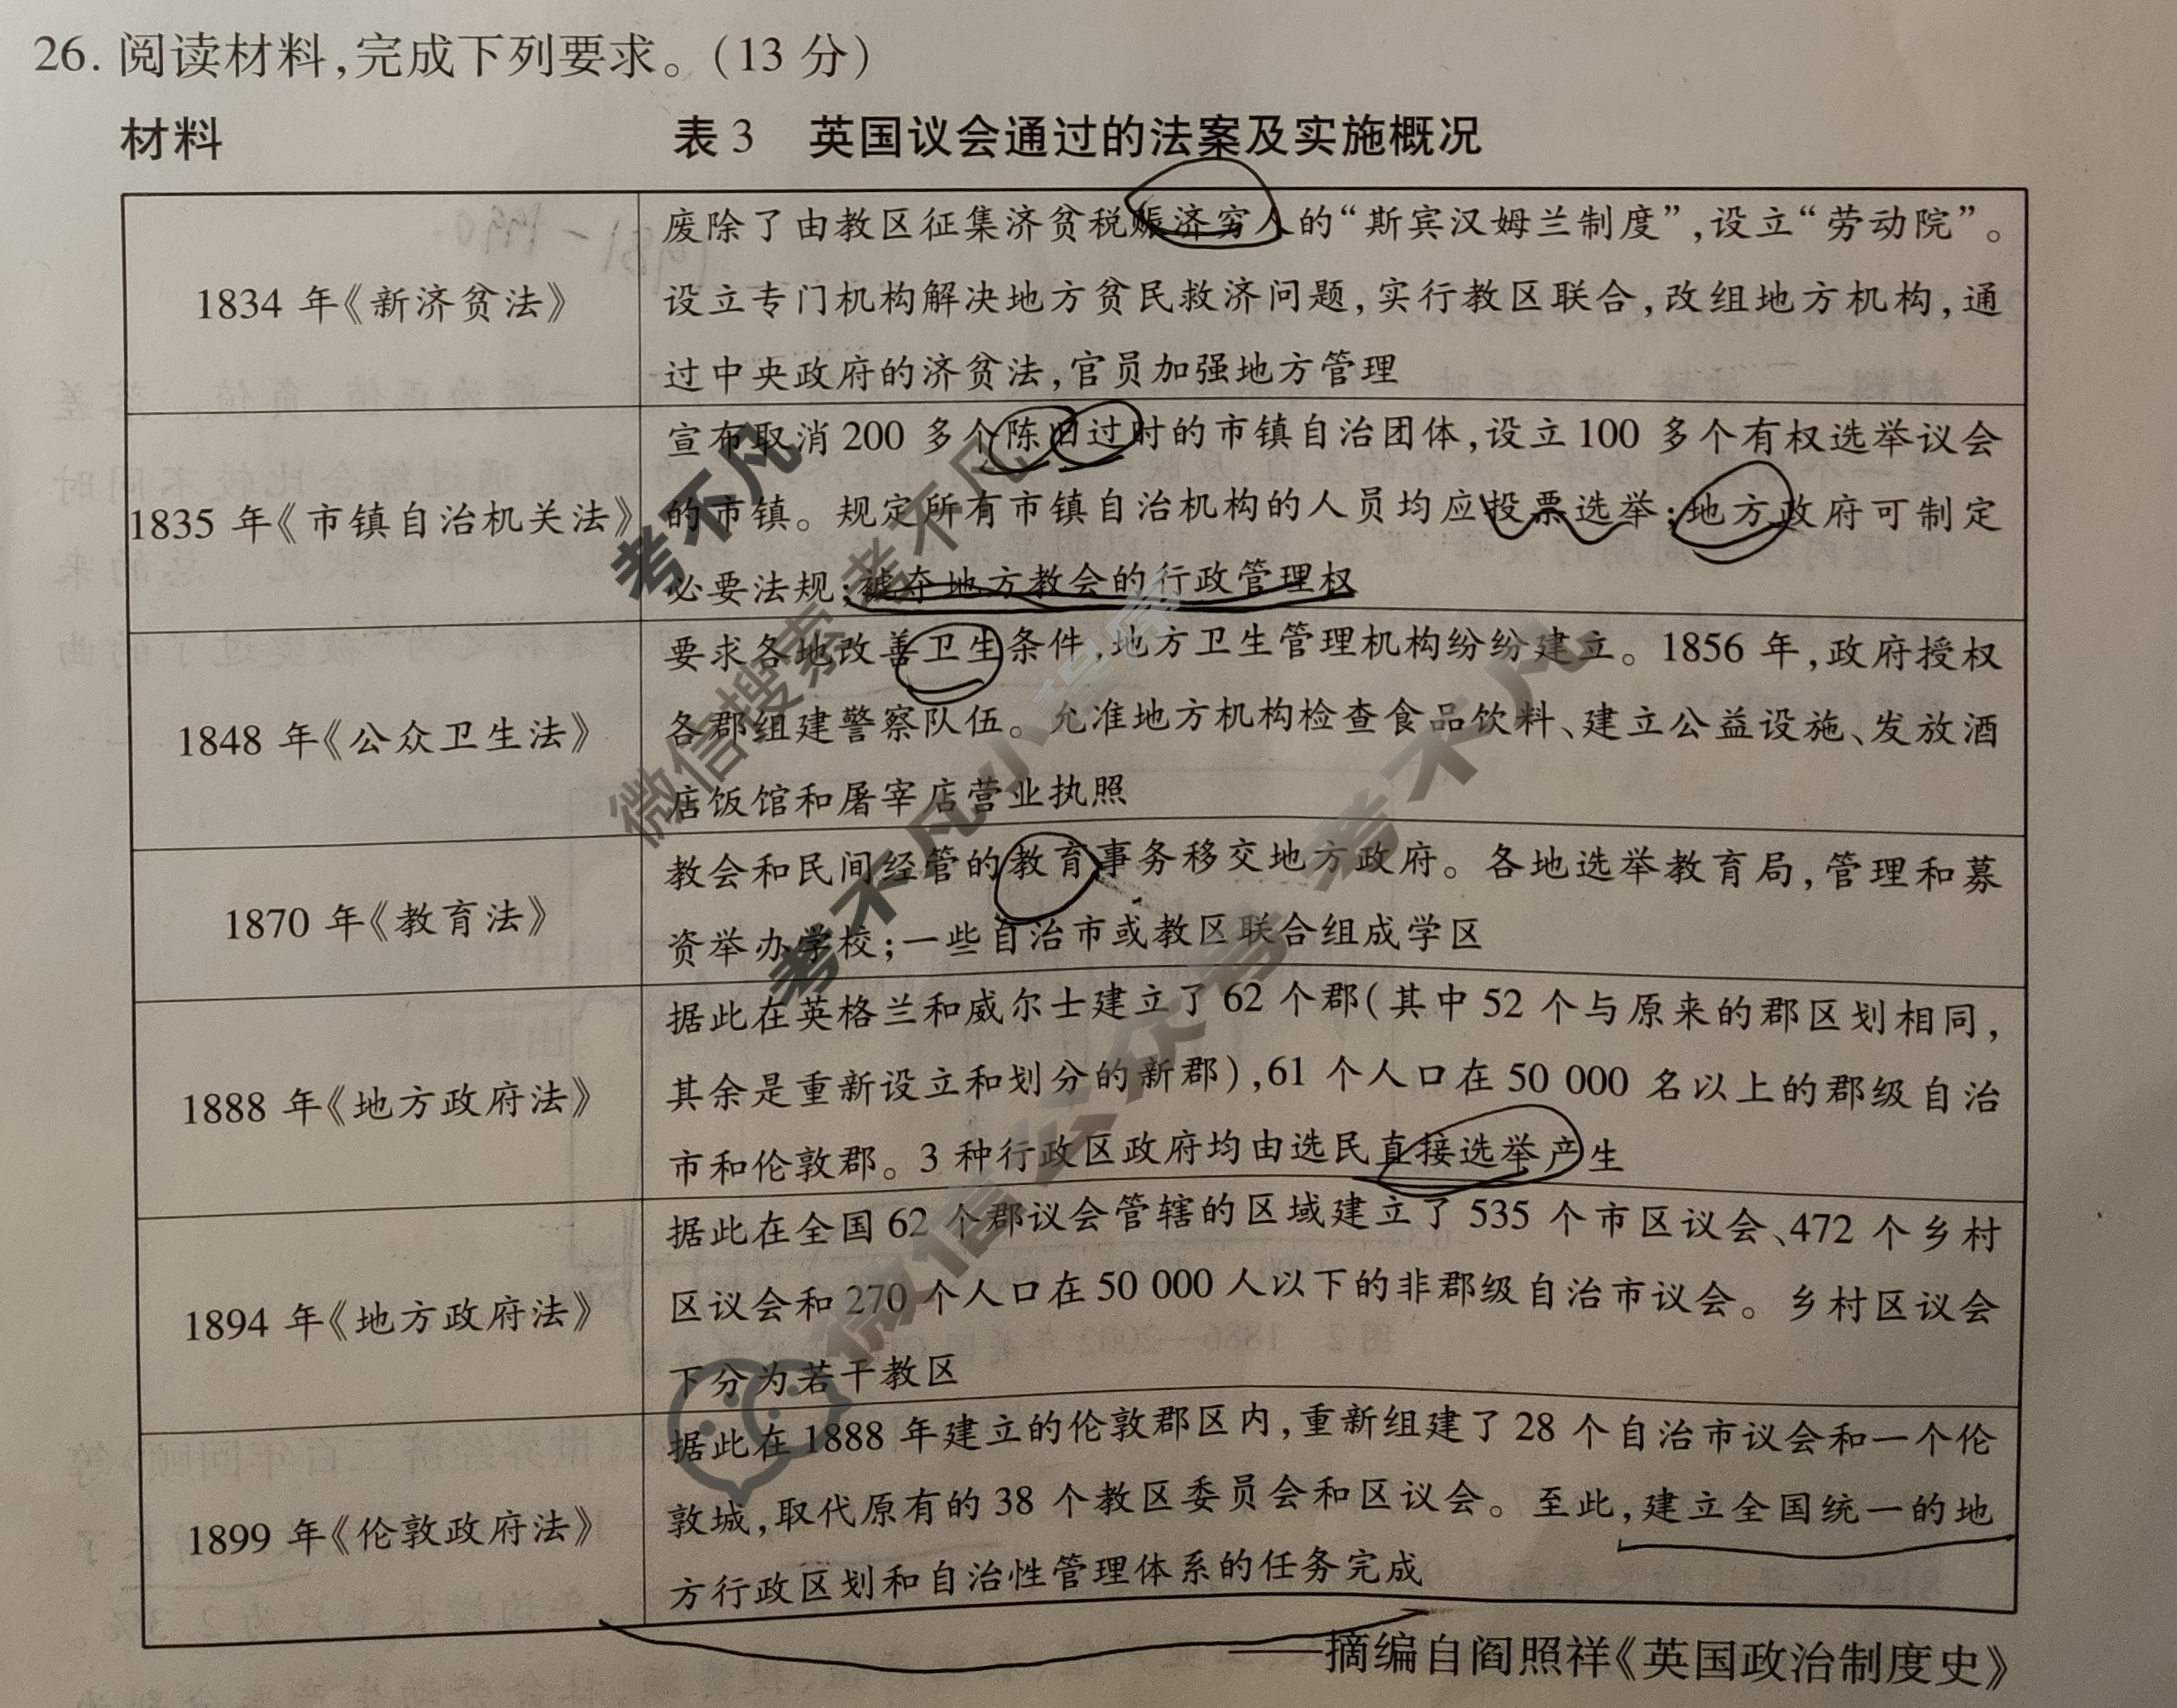 26. 阅读材料,完成下列要求。(13 分)
材料
表 3 英国议会通过的法案及实施概况
1834 年《新济贫法》
废除了由教区征集济贫税赈济穷人的“斯宾汉姆兰制度”,设立“劳动院”。
设立专门机构解决地方贫民救济问题,实行教区联合,改组地方机构,通
过中央政府的济贫法,官员加强地方管理
1835 年《市镇自治机关法》
宣布取消 200 多个陈旧过时的市镇自治团体,设立 100 多个有权选举议会
的市镇。规定所有市镇自治机构的人员均应投票选举;地方政府可制定
必要法规;褫夺地方教会的行政管理权
1848 年《公众卫生法》
要求各地改善卫生条件,地方卫生管理机构纷纷建立。1856 年,政府授权
各郡组建警察队伍。允准地方机构检查食品饮料、建立公益设施、发放酒
店饭馆和屠宰店营业执照
1870 年《教育法》
教会和民间经管的教育事务移交地方政府。各地选举教育局,管理和募
资举办学校;一些自治市或教区联合组成学区
1888 年《地方政府法》
据此在英格兰和威尔士建立了 62 个郡(其中 52 个与原来的郡区划相同,
其余是重新设立和划分的新郡),61 个人口在 50 000 名以上的郡级自治
市和伦敦郡。3 种行政区政府均由选民直接选举产生
1894 年《地方政府法》
据此在全国 62 个郡议会管辖的区域建立了 535 个市区议会、472 个乡村
区议会和 270 个人口在 50 000 人以下的非郡级自治市议会。乡村区议会
下分为若干教区
1899 年《伦敦政府法》
据此在 1888 年建立的伦敦郡区内,重新组建了 28 个自治市议会和一个伦
敦城,取代原有的 38 个教区委员会和区议会。至此,建立全国统一的地
方行政区划和自治性管理体系的任务完成
——摘编自阎照祥《英国政治制度史》
考不凡
微信搜索 考不凡
考不凡小程序
微信公众号 考不凡